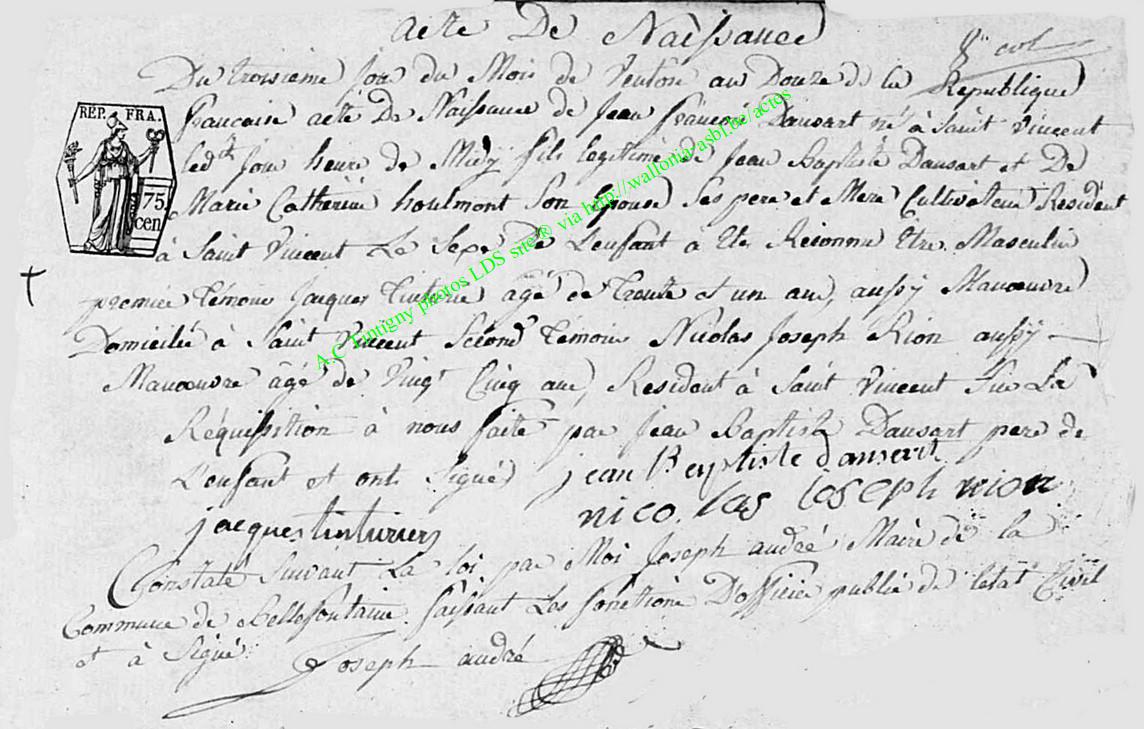 acte De Naissance
Du troisieme jour du Mois de Ventôse an Douze de la Republique
REP. FRA.
75
cen
francaise acte De Naissance de Jean françois Dausart né à Saint Vincent
ledt jour heure de Midy fils legitime de Jean Baptiste Dausart et De
Marie Catherine houlmont Son Epouse Ses pere et Mere Cultivateur Resident
à Saint Vincent Le Sexe de L'enfant a Ete Reconnu Etre Masculin
premier Témoin Jacques Tinturie âgé de Trente et un ans, aussy Manœuvre
Domicilié à Saint Vincent Second Témoin Nicolas Joseph Rion aussy
Manœuvre âgé de Vingt Cinq ans, Resident à Saint Vincent Sur La
Requisition à nous faite par Jean Baptiste Dausart pere de
L'enfant et ont Signé jean Baptiste dausart
jacques tinturier nicolas ioseph rion
Constaté Suivant La loi par Moi Joseph andré Maire de la
Commune de Bellefontaine faisant Les fonctions D'officier public de l'etat Civil
et à Signé Joseph andré
A.C Tintigny photos LDS site® via http://wallonia-asbl.be/actes